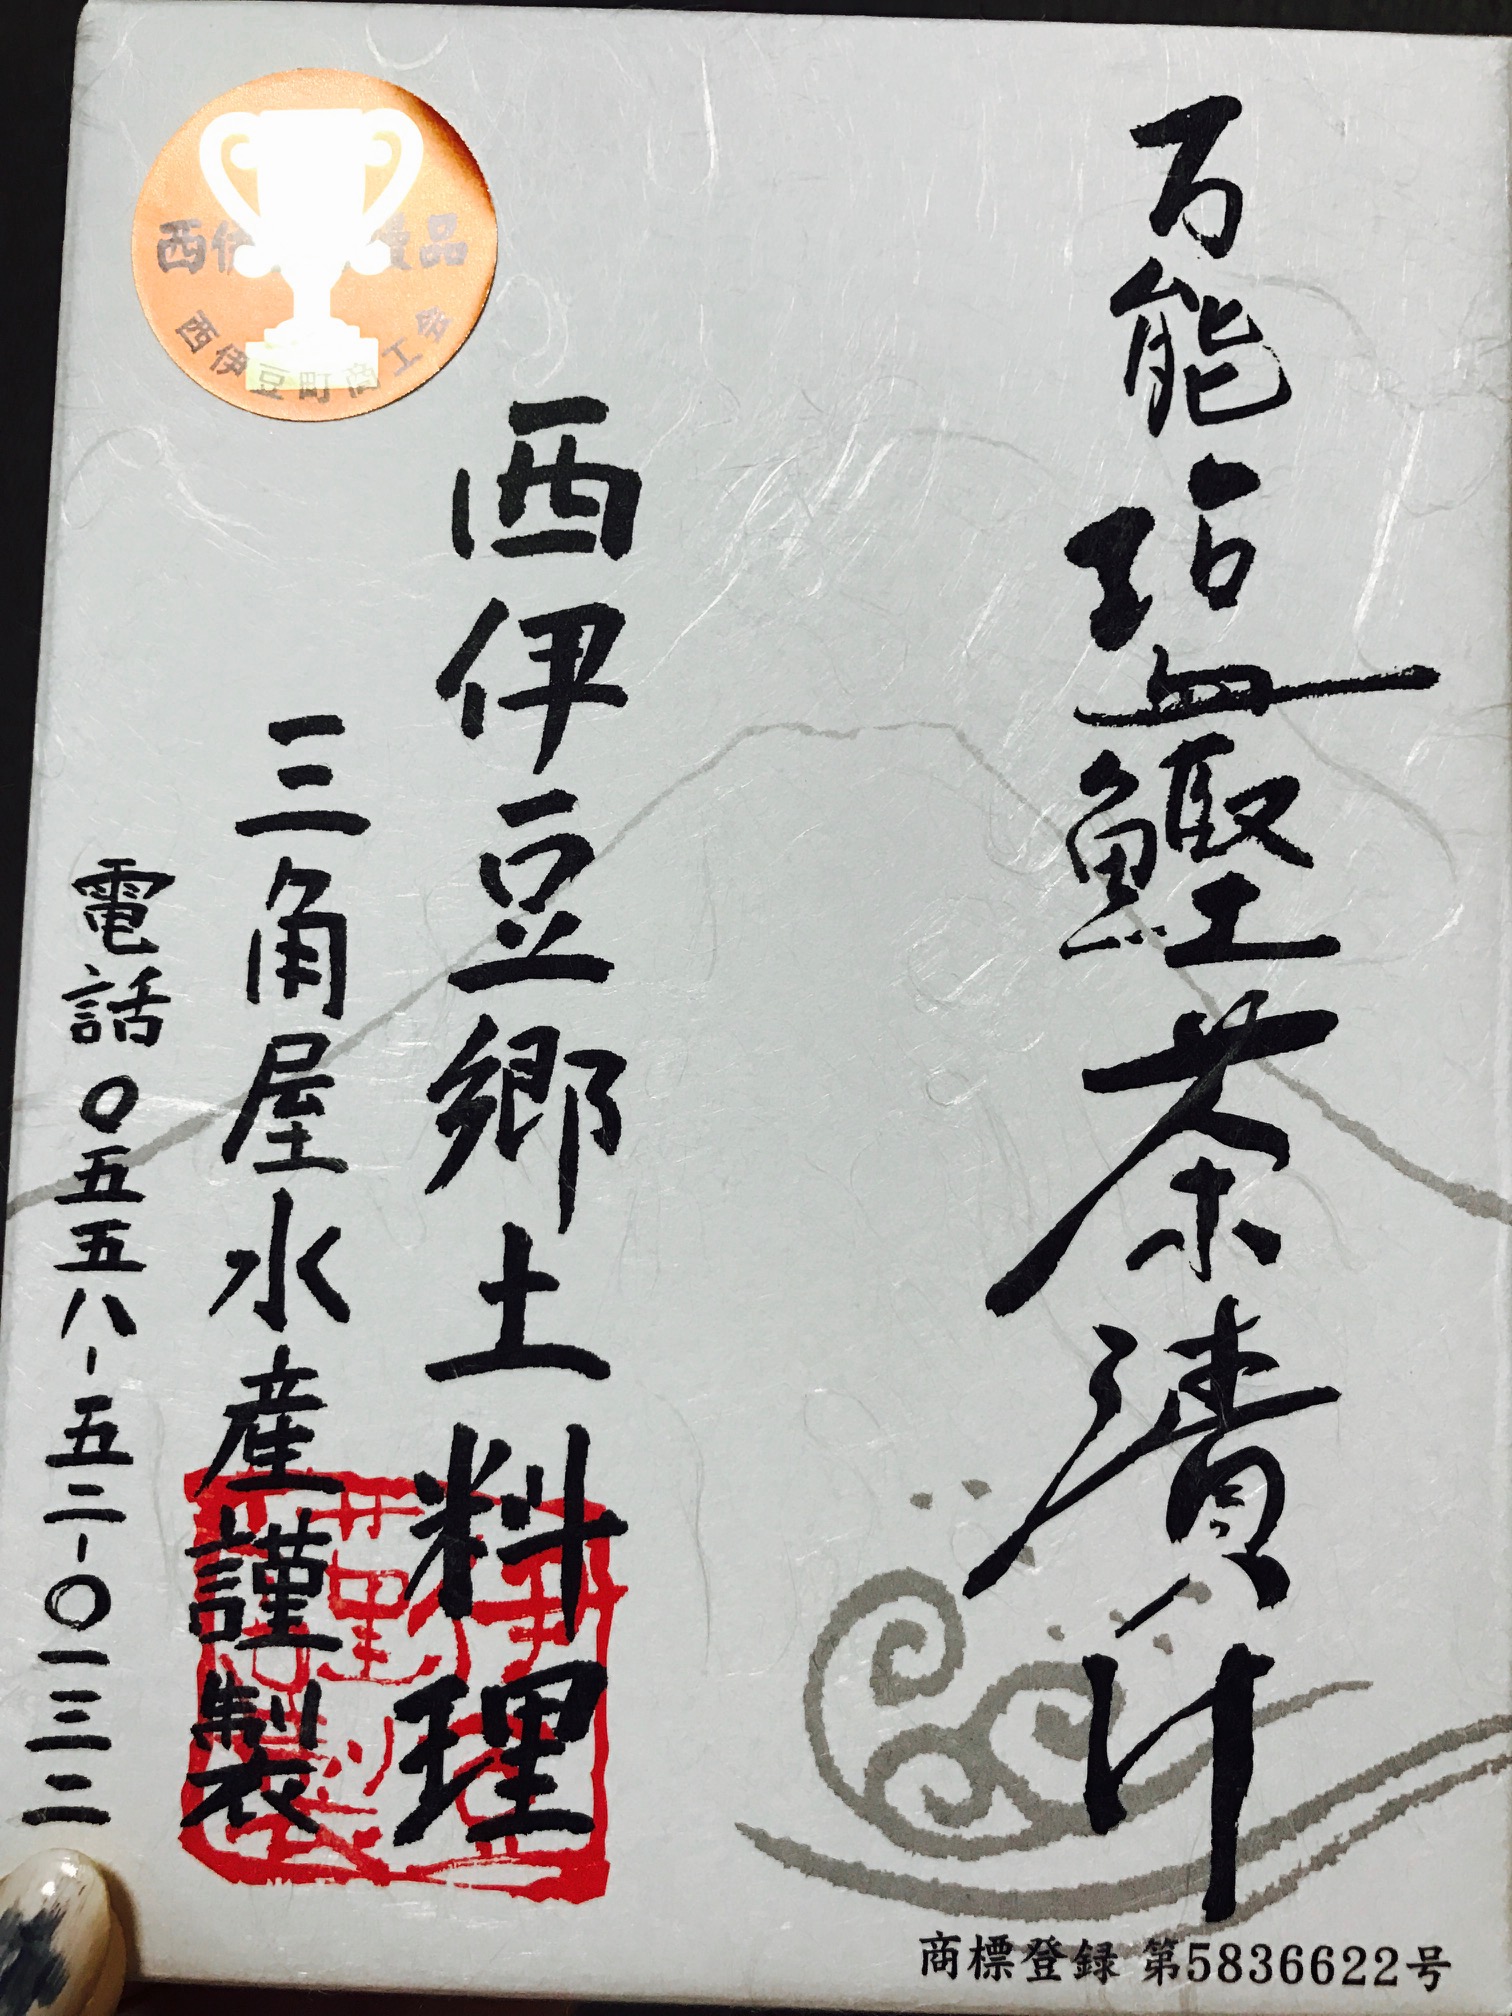 万能塩鰹茶漬け
西伊豆郷土料理
三角屋水産謹製
電話〇五五八-五二-〇一三二
西伊
品
西伊豆町商工会
商標登録 第5836622号